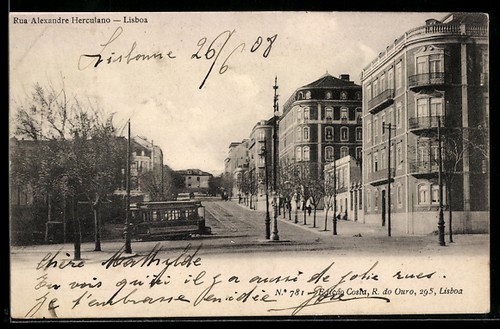 Rua Alexandre Herculano — Lisboa
Lisbonne 26/6 08
Chère Mathilde
Tu vois qu'il y a aussi de jolie rues.
Je t'embrasse
N.º 781 — Edição Costa, R. do Ouro, 295, Lisboa